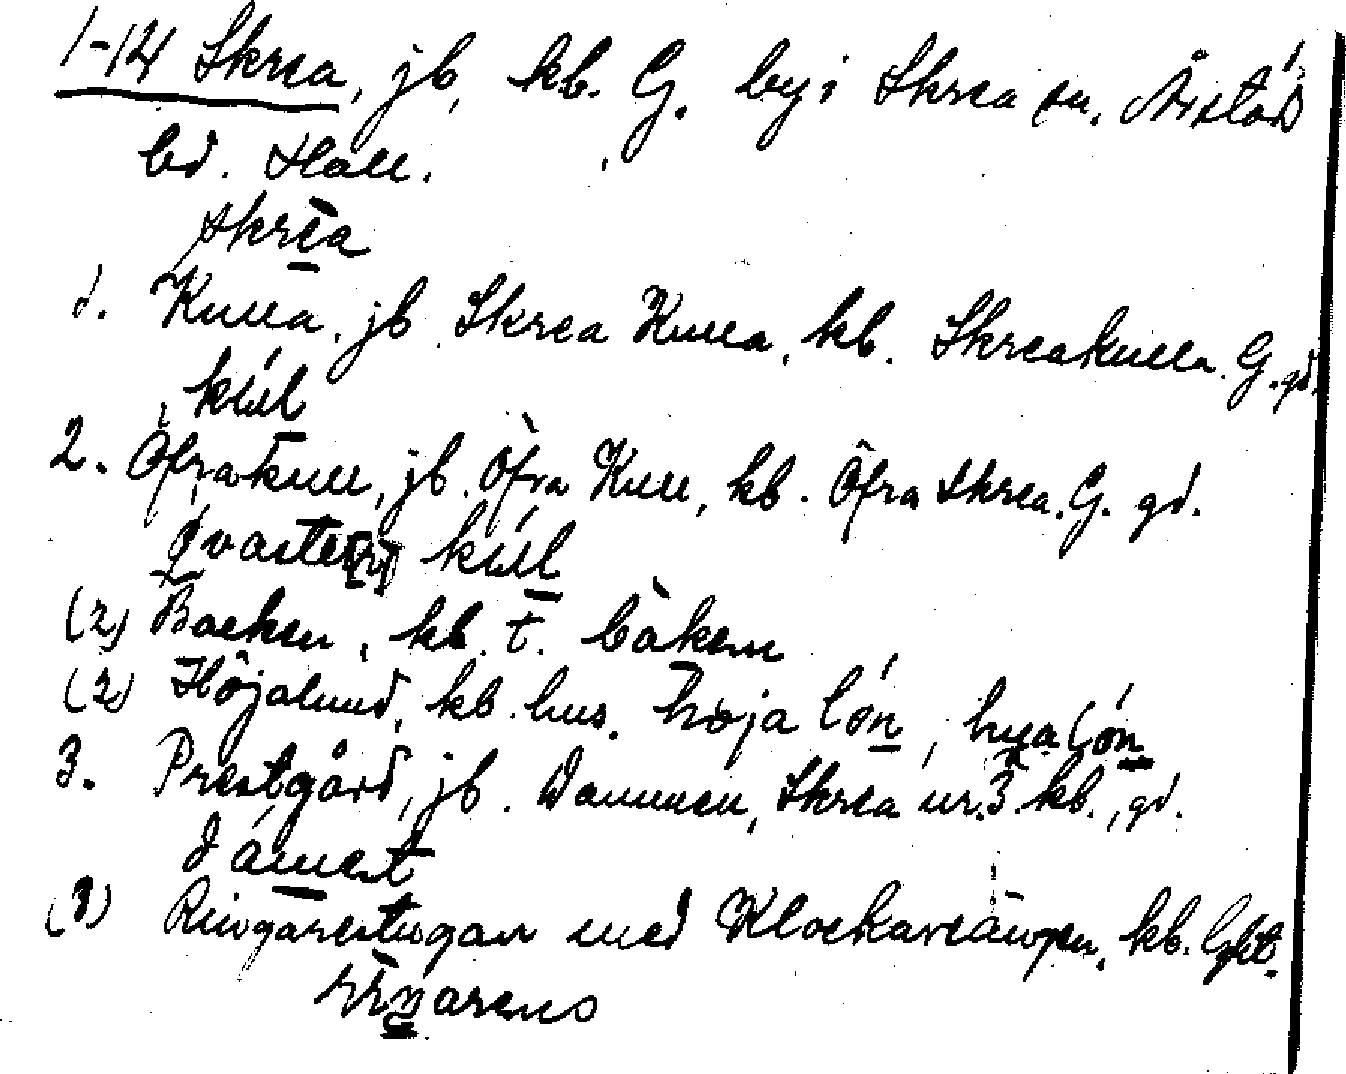 1-14 Skrea, jb, kb. G. by i Skrea sn. Årstad
hd. Hall.
skrèa
1. Kulla, jb. Skrea Kulla, kb. Skreakulla. G. gd.
kúl
2. Öfrakull, jb. Öfra Kull, kb. Öfra Skrea. G. gd.
kúl
(2) Backen, kb. t. bàken
(2) Höjalund, kb. hus. høja lón, hya lón
3. Prestgård, jb. Dammen, Skrea nr. 3. kb., gd.
dámest
(3) Ringarestugan med Klockareängen, kb. lght.